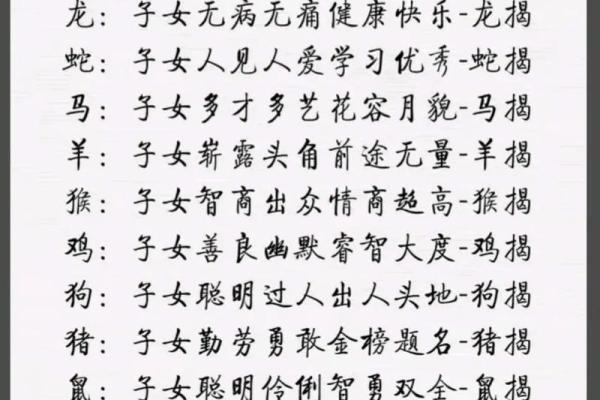 龙：子女无病无痛健康快乐-龙揭
蛇：子女人见人爱学习优秀-蛇揭
马：子女多才多艺花容月貌-马揭
羊：子女崭露头角前途无量-羊揭
猴：子女智商出众情商超高-猴揭
鸡：子女善良幽默睿智大度-鸡揭
狗：子女聪明过人出人头地-狗揭
猪：子女勤劳勇敢金榜题名-猪揭
鼠：子女聪明伶俐智勇双全-鼠揭